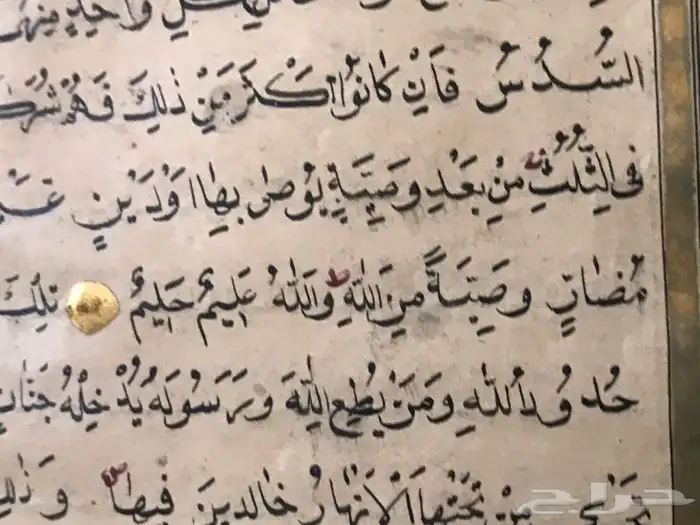 واحد منهما
السُّدُسُ فَاِنْ كَانُوٓا اَكْثَرَ مِنْ ذٰلِكَ فَهُمْ شُرَكَ
فِى الثُّلُثِ مِنْ بَعْدِ وَصِيَّةٍ يُوصٰى بِهَا اَوْ دَيْنٍ غَيْ
مُضَارٍّ وَصِيَّةً مِنَ اللّٰهِ وَاللّٰهُ عَلِيمٌ حَلِيمٌ تِلْكَ
حُدُودُ اللّٰهِ وَمَنْ يُطِعِ اللّٰهَ وَرَسُولَهُ يُدْخِلْهُ جَنَّاتٍ
تَجْرِى مِنْ تَحْتِهَا الْاَنْهَارُ خَالِدِينَ فِيهَا وَذٰلِكَ
حراج